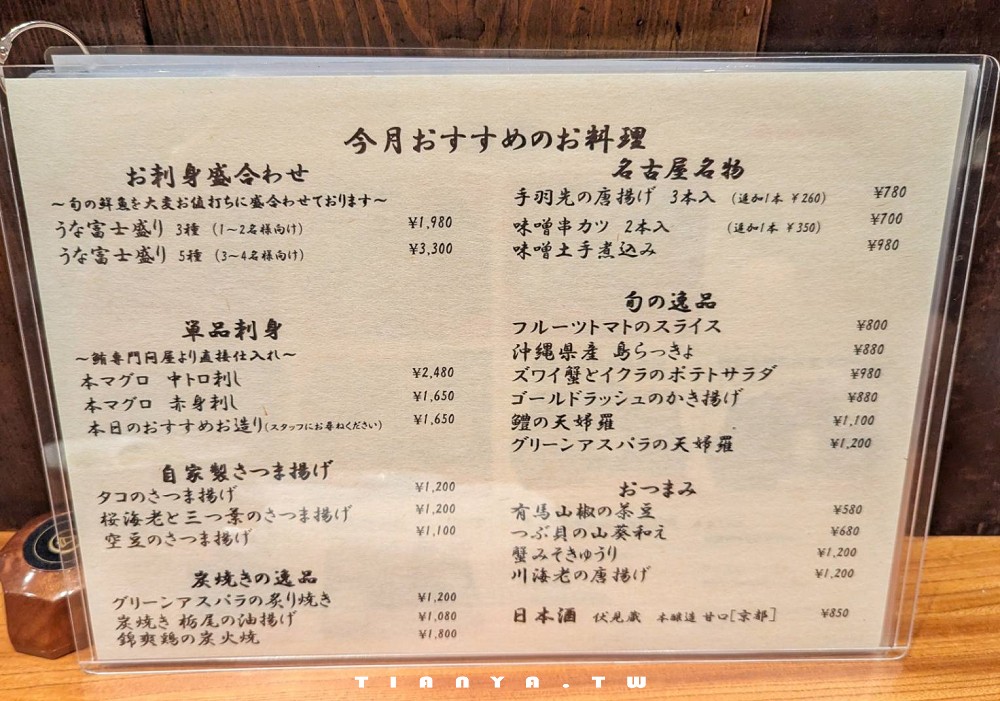 今月おすすめのお料理
お刺身盛合わせ
～旬の鮮魚を大変お値打ちに盛合わせております～
うな富士盛り 3種 (1～2名様向け) ¥1,980
うな富士盛り 5種 (3～4名様向け) ¥3,300
単品刺身
～鮪専門問屋より直接仕入れ～
本マグロ 中トロ刺し ¥2,480
本マグロ 赤身刺し ¥1,650
本日のおすすめお造り(スタッフにお尋ねください) ¥1,650
自家製さつま揚げ
タコのさつま揚げ ¥1,200
桜海老と三つ葉のさつま揚げ ¥1,200
空豆のさつま揚げ ¥1,100
炭焼きの逸品
グリーンアスパラの炙り焼き ¥1,200
炭焼き 栃尾の油揚げ ¥1,080
錦爽鶏の炭火焼 ¥1,800
名古屋名物
手羽先の唐揚げ 3本入 (追加1本 ¥260) ¥780
味噌串カツ 2本入 (追加1本 ¥350) ¥700
味噌土手煮込み ¥980
旬の逸品
フルーツトマトのスライス ¥800
沖縄県産 島らっきょ ¥880
ズワイ蟹とイクラのポテトサラダ ¥980
ゴールドラッシュのかき揚げ ¥880
鱧の天婦羅 ¥1,100
グリーンアスパラの天婦羅 ¥1,200
おつまみ
有馬山椒の茶豆 ¥580
つぶ貝の山葵和え ¥680
蟹みそきゅうり ¥1,200
川海老の唐揚げ ¥1,200
日本酒 伏見蔵 本醸造 甘口[京都] ¥850
TIANYA.TW